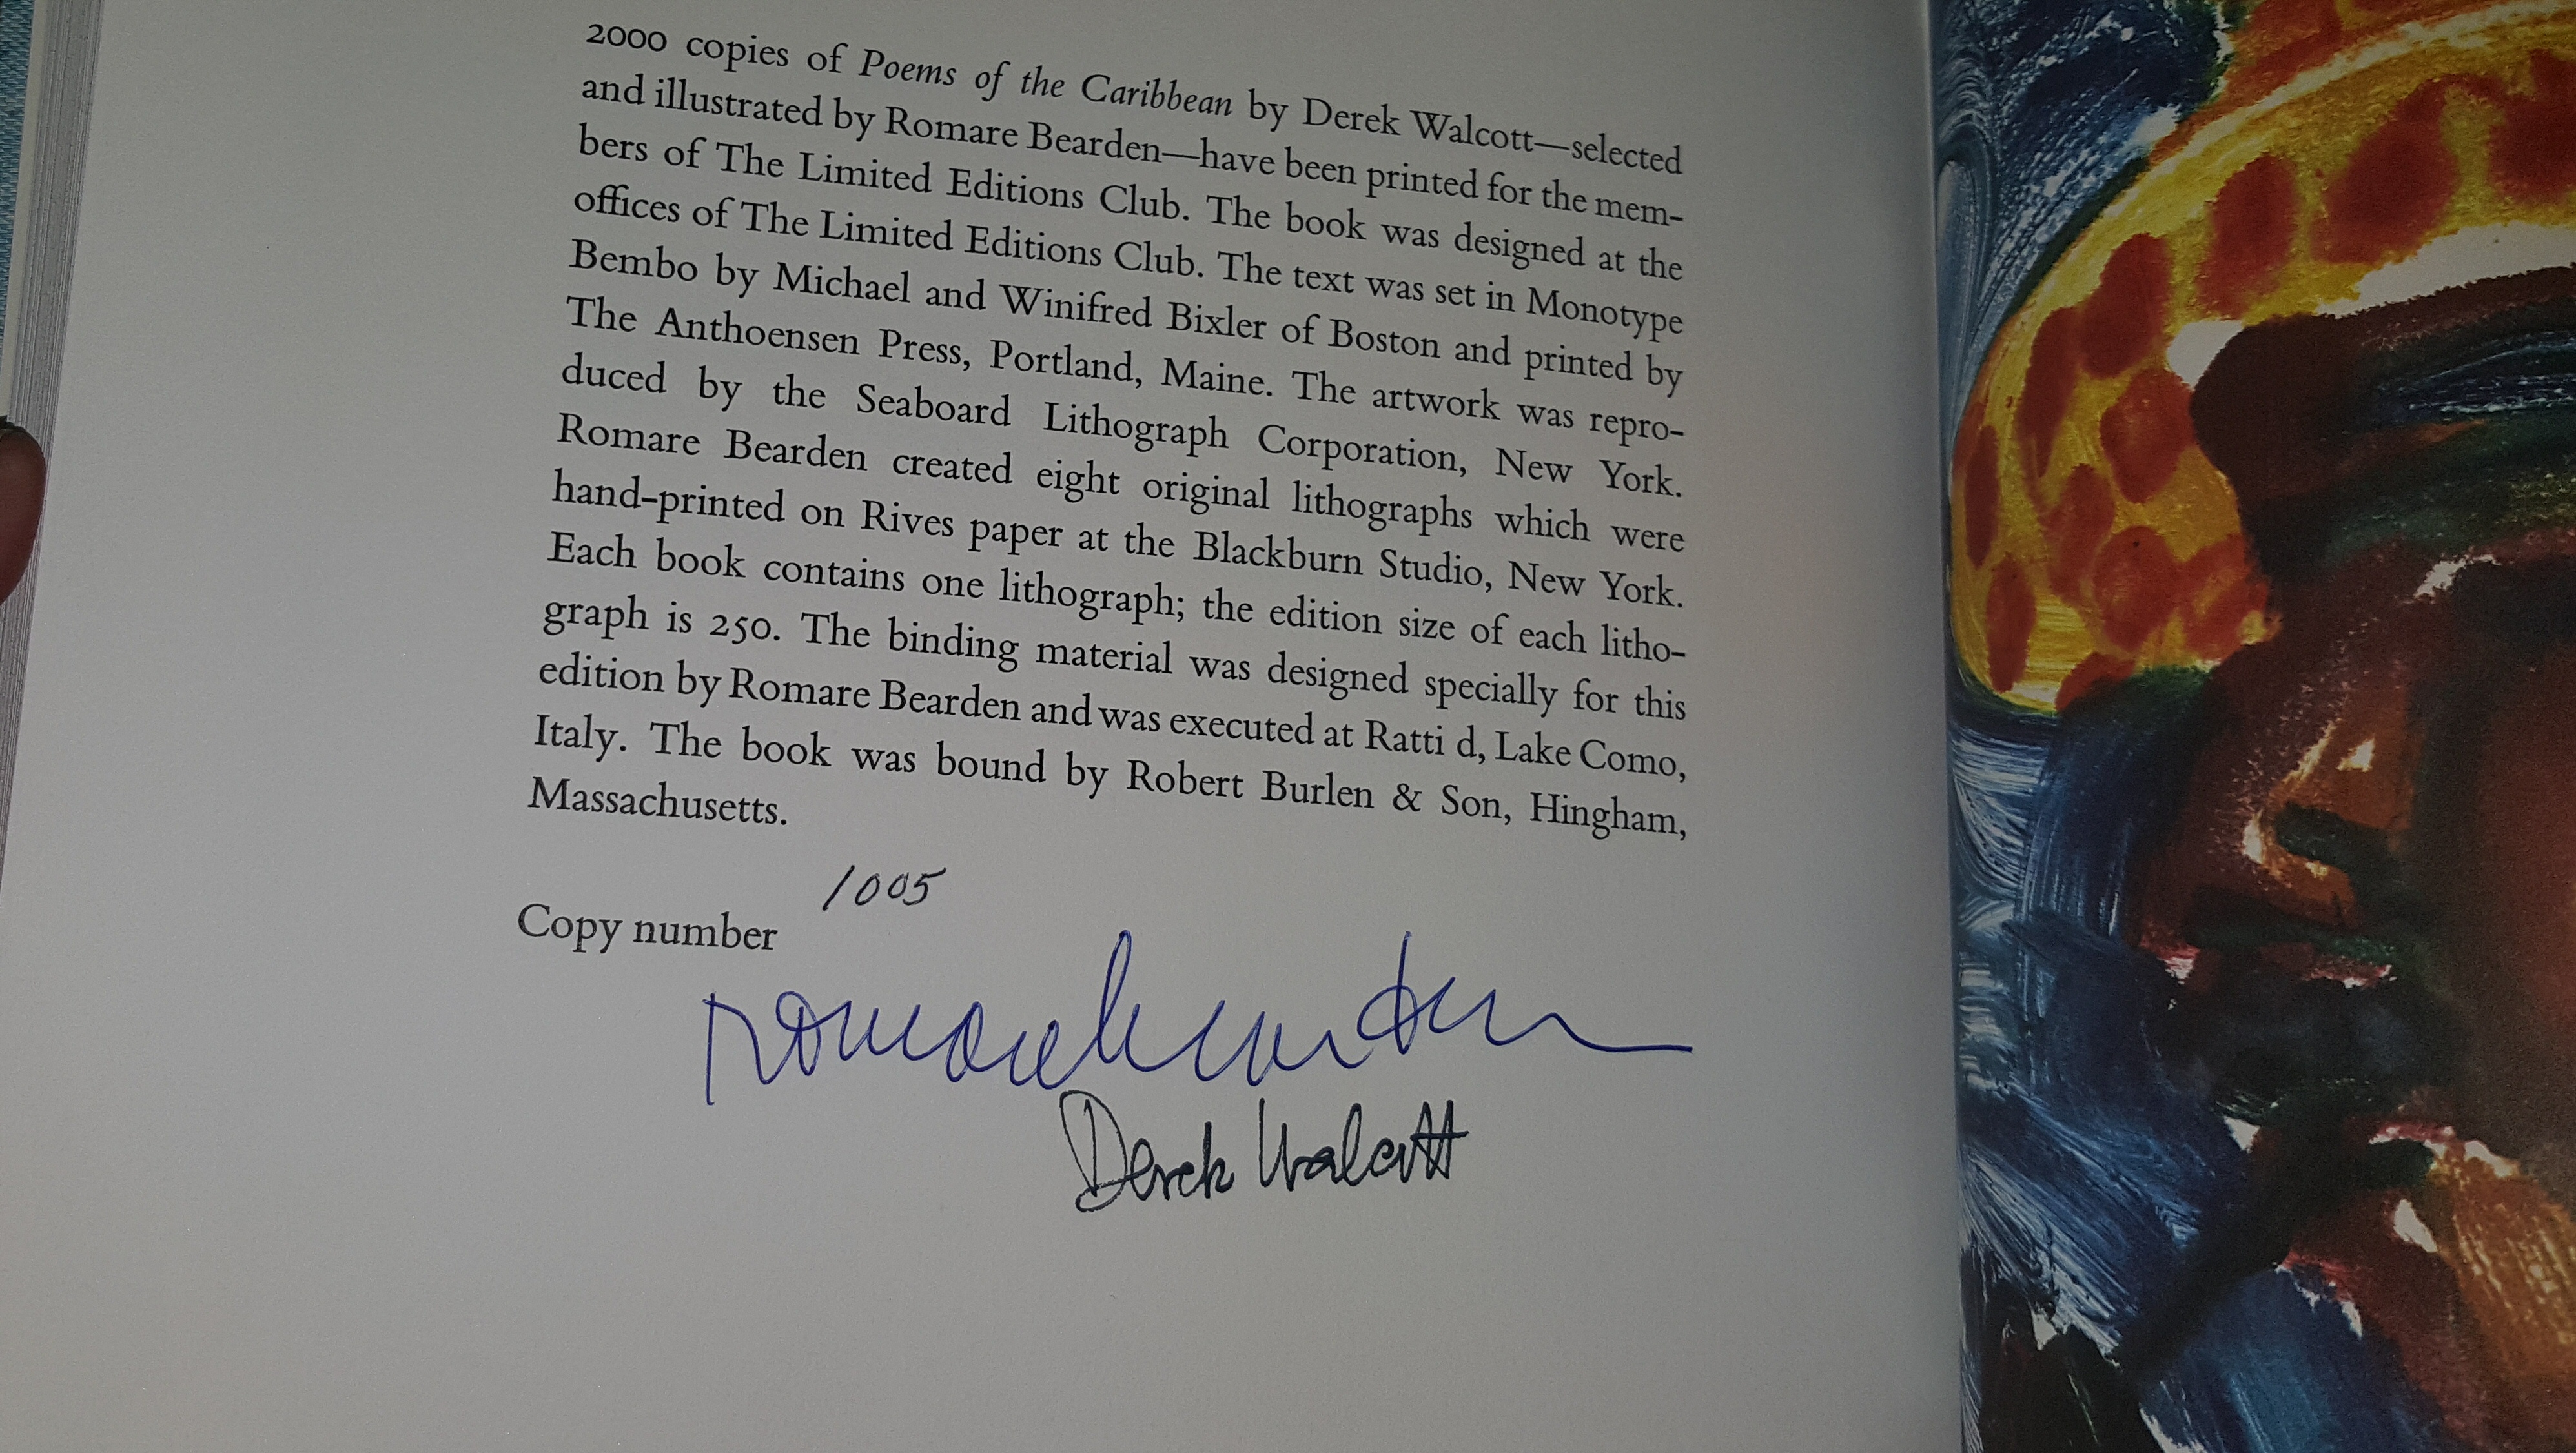 2000 copies of Poems of the Caribbean by Derek Walcott—selected
and illustrated by Romare Bearden—have been printed for the mem-
bers of The Limited Editions Club. The book was designed at the
offices of The Limited Editions Club. The text was set in Monotype
Bembo by Michael and Winifred Bixler of Boston and printed by
The Anthoensen Press, Portland, Maine. The artwork was repro-
duced by the Seaboard Lithograph Corporation, New York.
Romare Bearden created eight original lithographs which were
hand-printed on Rives paper at the Blackburn Studio, New York.
Each book contains one lithograph; the edition size of each litho-
graph is 250. The binding material was designed specially for this
edition by Romare Bearden and was executed at Ratti d, Lake Como,
Italy. The book was bound by Robert Burlen & Son, Hingham,
Massachusetts.
Copy number 1005
Romare Bearden
Derek Walcott